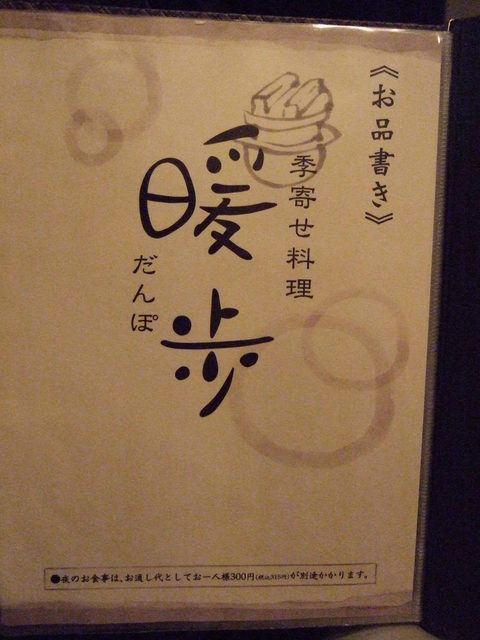 《お品書き》
季寄せ料理
暖歩
だんぽ
●夜のお食事は、お通し代としてお一人様300円(税込315円)が別途かかります。